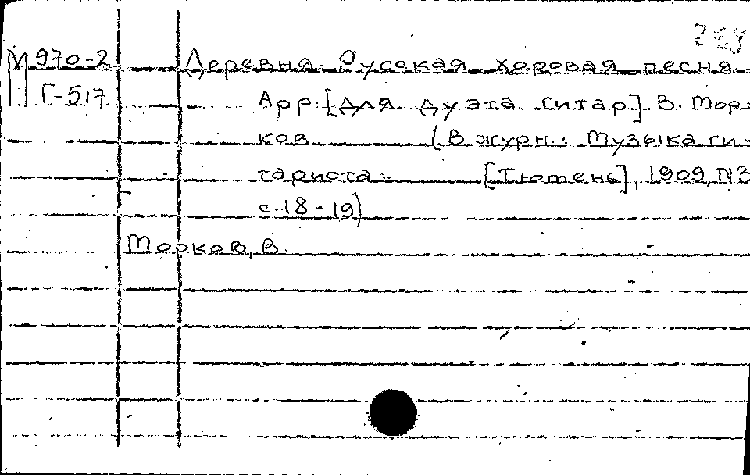 М 970-2 Деревня. Русская хоровая песня.
Г-517 Арр. [для дуэта гитар] В. Мор-
ков (В журн.: Музыка ги-
тариста. [Тюмень], 1909, №3
с. 18-19)
Морков, В.